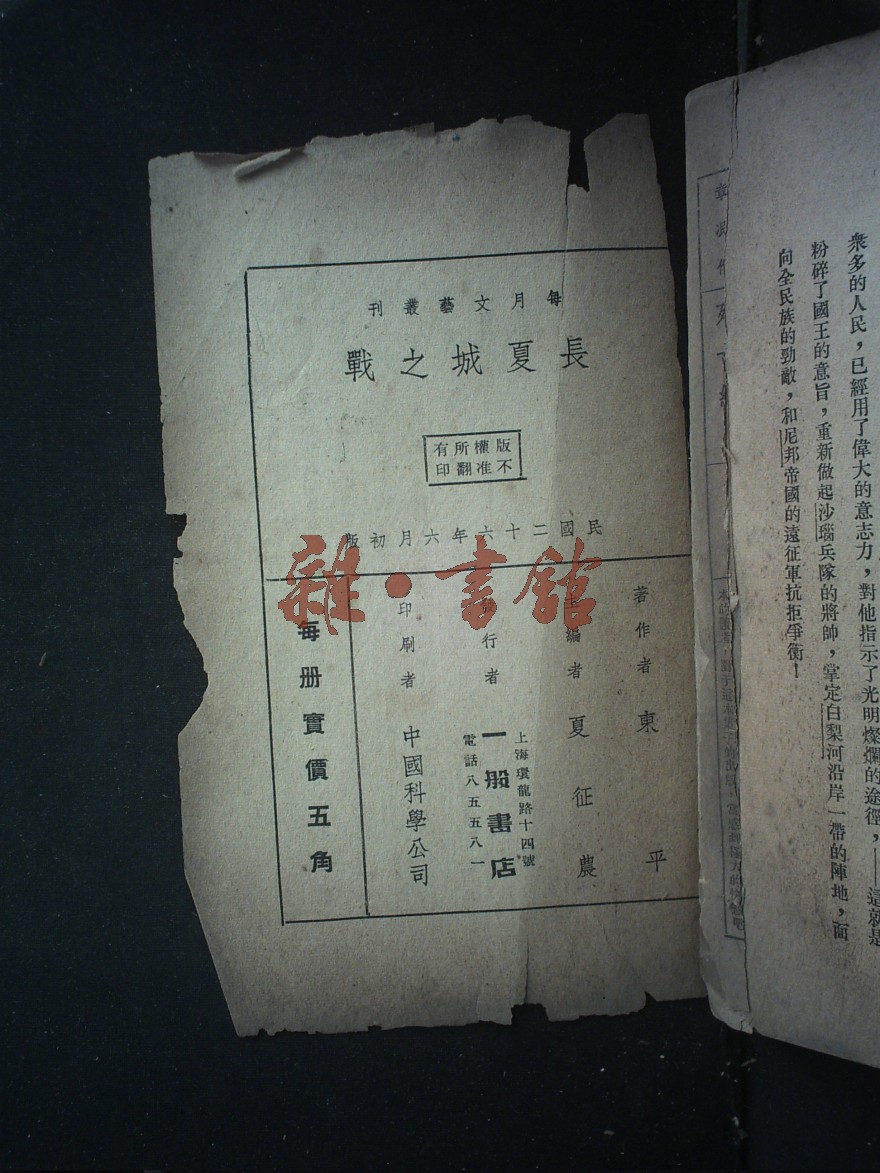 衆多的人民，已經用了偉大的意志力，對他指示了光明燦爛的途徑，——這就是
粉碎了國王的意旨，重新做起沙瑙兵隊的將帥，掌定白梨河沿岸一帶的陣地，面
向全民族的勁敵，和尼邦帝國的遠征軍抗拒爭衡！
每月文藝叢刊
長夏城之戰
版權所有
不准翻印
民國二十六年六月初版
著作者 東平
主編者 夏征農
發行者 一般書店
上海環龍路十四號
電話八五五八一
印刷者 中國科學公司
每册實價五角
雜·書館